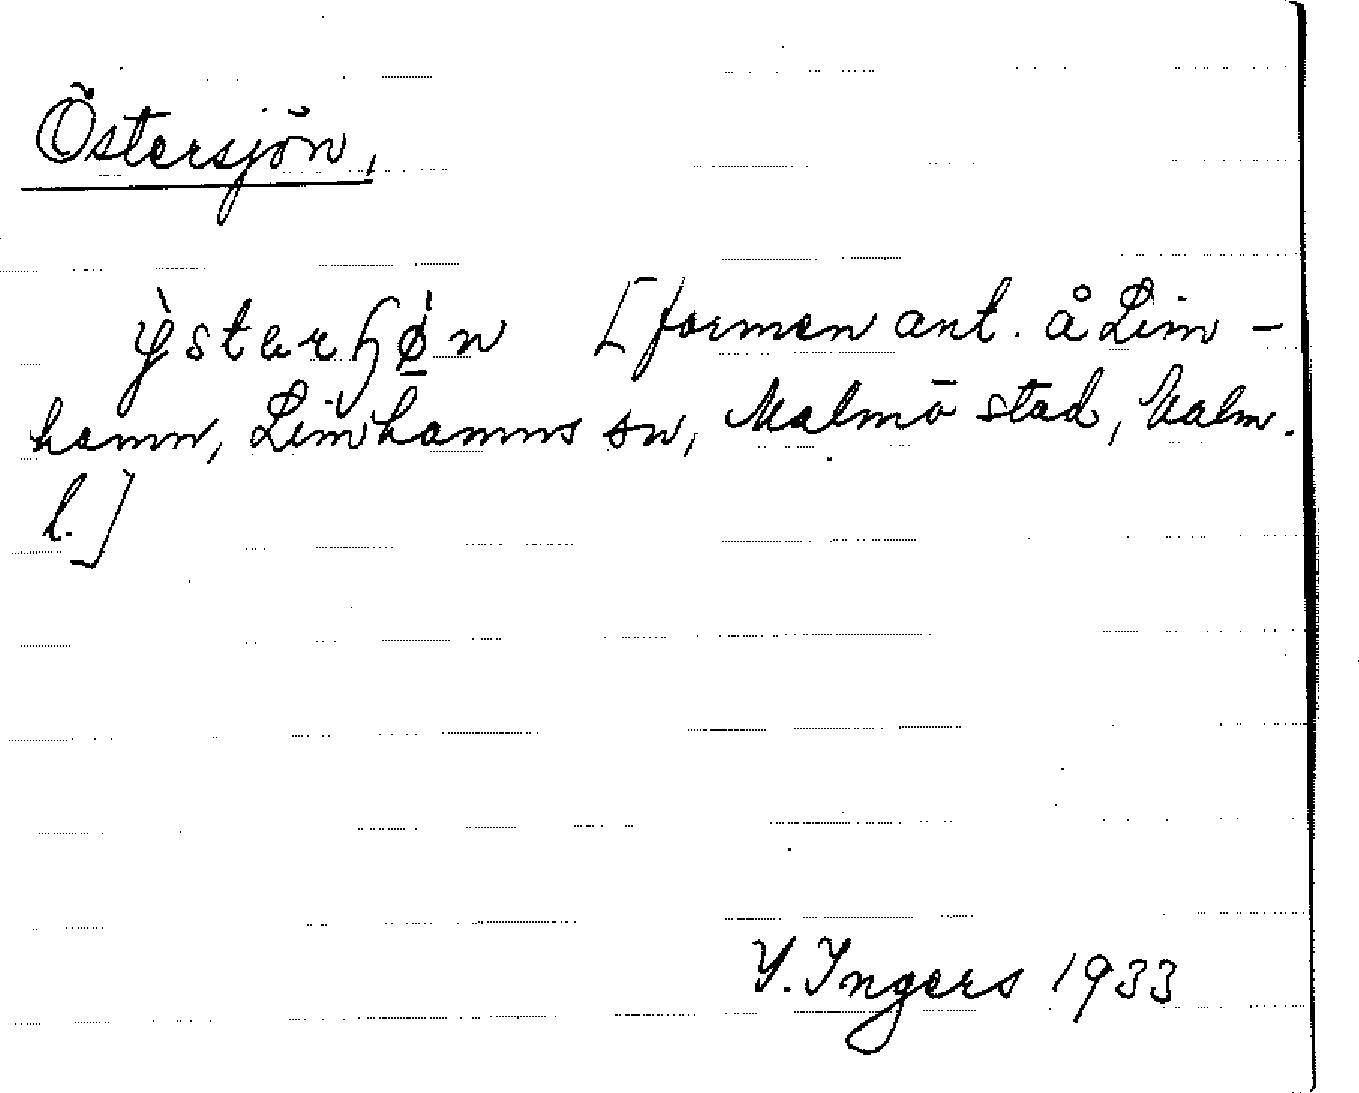 Östersjön,
[formen ant. å Lim-
hamn, Limhamns sn, Malmö stad, Malm.
l.]
Y. Ingers 1933